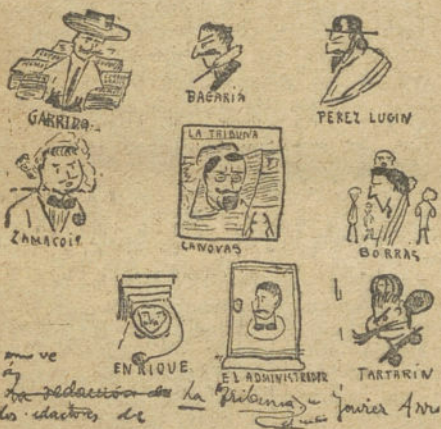 GARRIDO
BAGARIA
PEREZ LUGIN
ZAMACOIS
LA TRIBUNA
CANOVAS
BORRAS
ENRIQUE
EL ADMINISTRADOR
TARTARIN
ve
La redacción de La Tribuna
los de Javier